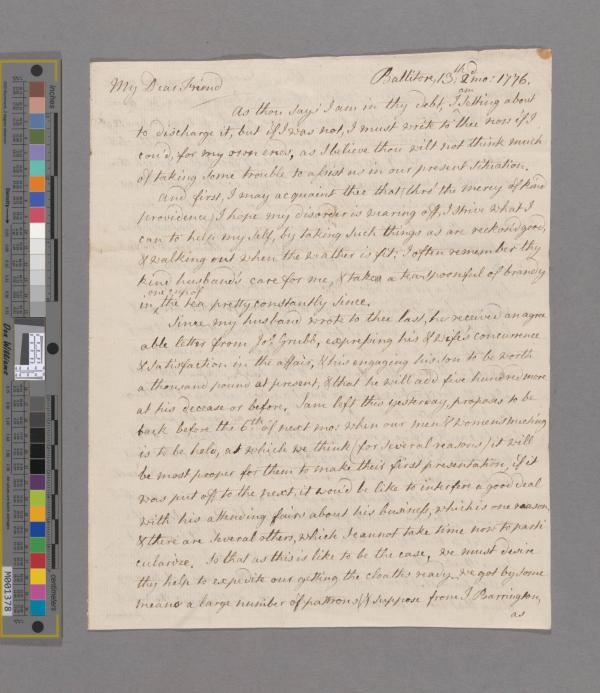 My Dear Friend
Ballitore, 13th 2d mo: 1776.
As thou says I am in thy debt, I am setting about
to discharge it, but if I was not, I must write to thee now if I
cou'd, for my own ends, as I believe thou will not think much
of taking some trouble to assist us in our present situation.
And first, I may acquaint thee that thro' the mercy of kind
providence, I hope my disorder is wearing off, I strive what I
can to help my self, by taking such things as are reckon'd good,
& walking out when the weather is fit: I often remember thy
kind husband's care for me, & take a teaspoonful of brandy
in one cup of the tea pretty constantly since.
Since my husband wrote to thee last, he received an agree
able letter from Jos. Grubb, expressing his & wife's concurrence
& satisfaction in the affair, & his engaging his son to be worth
a thousand pound at present, & that he will add five hundred more
at his decease or before. Sam left this yesterday, proposes to be
back before the 6th of next mo: when our men & women's meeting
is to be held, at which we think (for several reasons) it will
be most proper for them to make their first presentation, if it
was put off to the next, it wou'd be like to interfere a good deal
with his attending fairs about his business, which is one reason,
& there are several others, which I cannot take time now to parti
cularize. So that as this is like to be the case, we must desire
thy help to expedite our getting the cloaths ready. we got by some
means a large number of pattrons, (I suppose from J. Barrington,
as
inches
centimetres
Don Williams
M001378